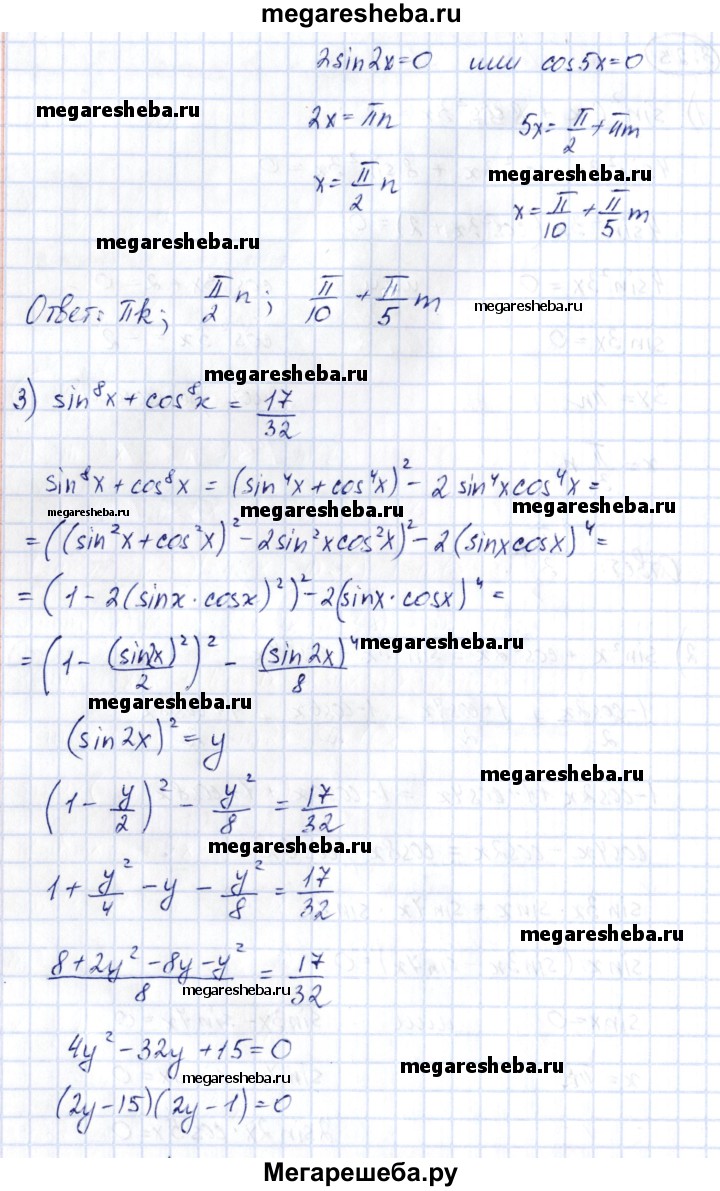 megaresheba.ru
2sin2x=0 или cos5x=0
megaresheba.ru
2x=πn 5x=π/2+πm
megaresheba.ru
x=π/2 n x=π/10+π/5 m
megaresheba.ru
Ответ: πk; π/2 n; π/10+π/5 m
megaresheba.ru
megaresheba.ru
3) sin⁸x+cos⁸x=17/32
sin⁸x+cos⁸x=(sin⁴x+cos⁴x)²-2sin⁴xcos⁴x=
megaresheba.ru megaresheba.ru megaresheba.ru
=((sin²x+cos²x)²-2sin²xcos²x)²-2(sinxcosx)⁴=
=(1-2(sinx·cosx)²)²-2(sinx·cosx)⁴=
=(1-(sin2x)²/2)²-(sin2x)⁴/8
megaresheba.ru
megaresheba.ru
(sin2x)²=y
megaresheba.ru
(1-y/2)²-y²/8=17/32
megaresheba.ru
1+y²/4-y-y²/8=17/32
megaresheba.ru
(8+2y²-8y-y²)/8=17/32
megaresheba.ru
4y²-32y+15=0
megaresheba.ru
megaresheba.ru
(2y-15)(2y-1)=0
Мегарешеба.ру